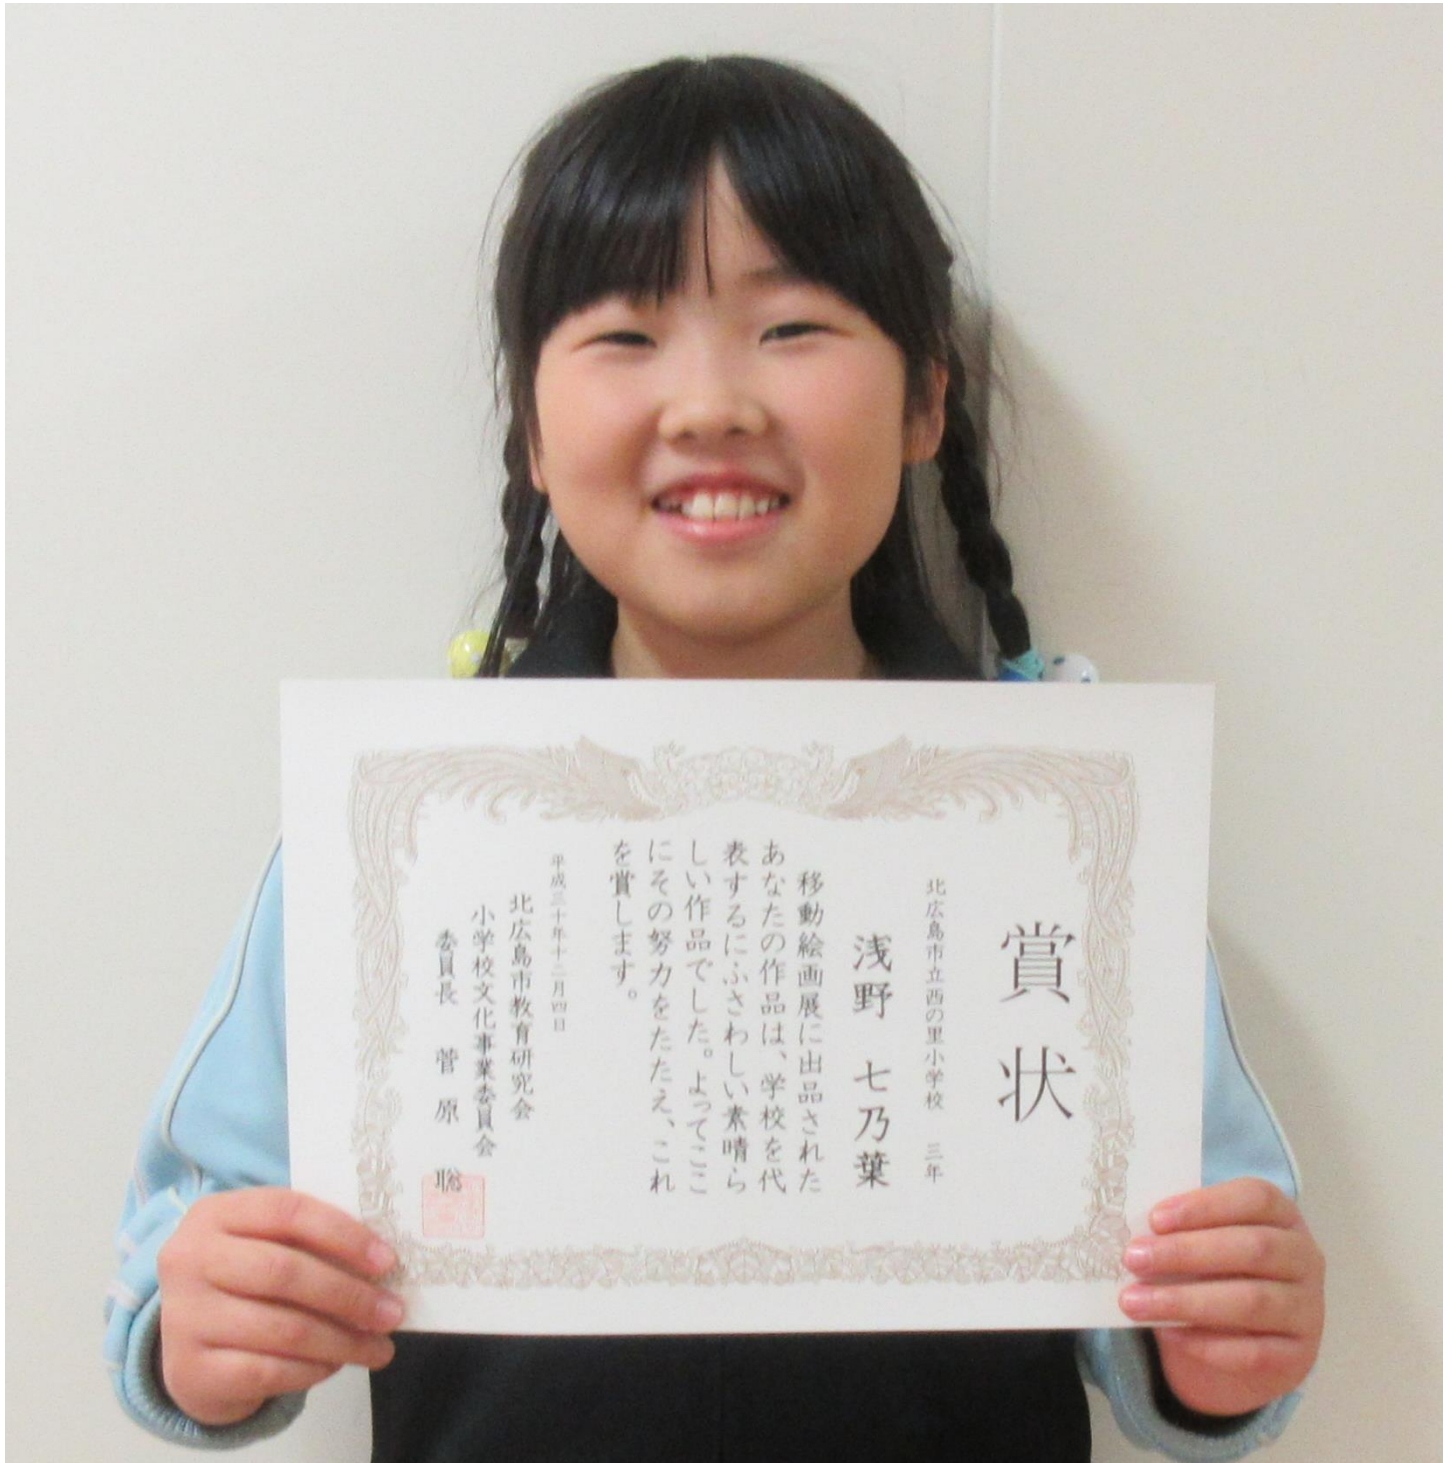 賞状
北広島市立西の里小学校 三年
浅野 七乃葉
移動絵画展に出品された
あなたの作品は、学校を代
表するにふさわしい素晴ら
しい作品でした。よってここ
にその努力をたたえ、これ
を賞します。
平成三十年十二月四日
北広島市教育研究会
小学校文化事業委員会
委員長 菅原 聡